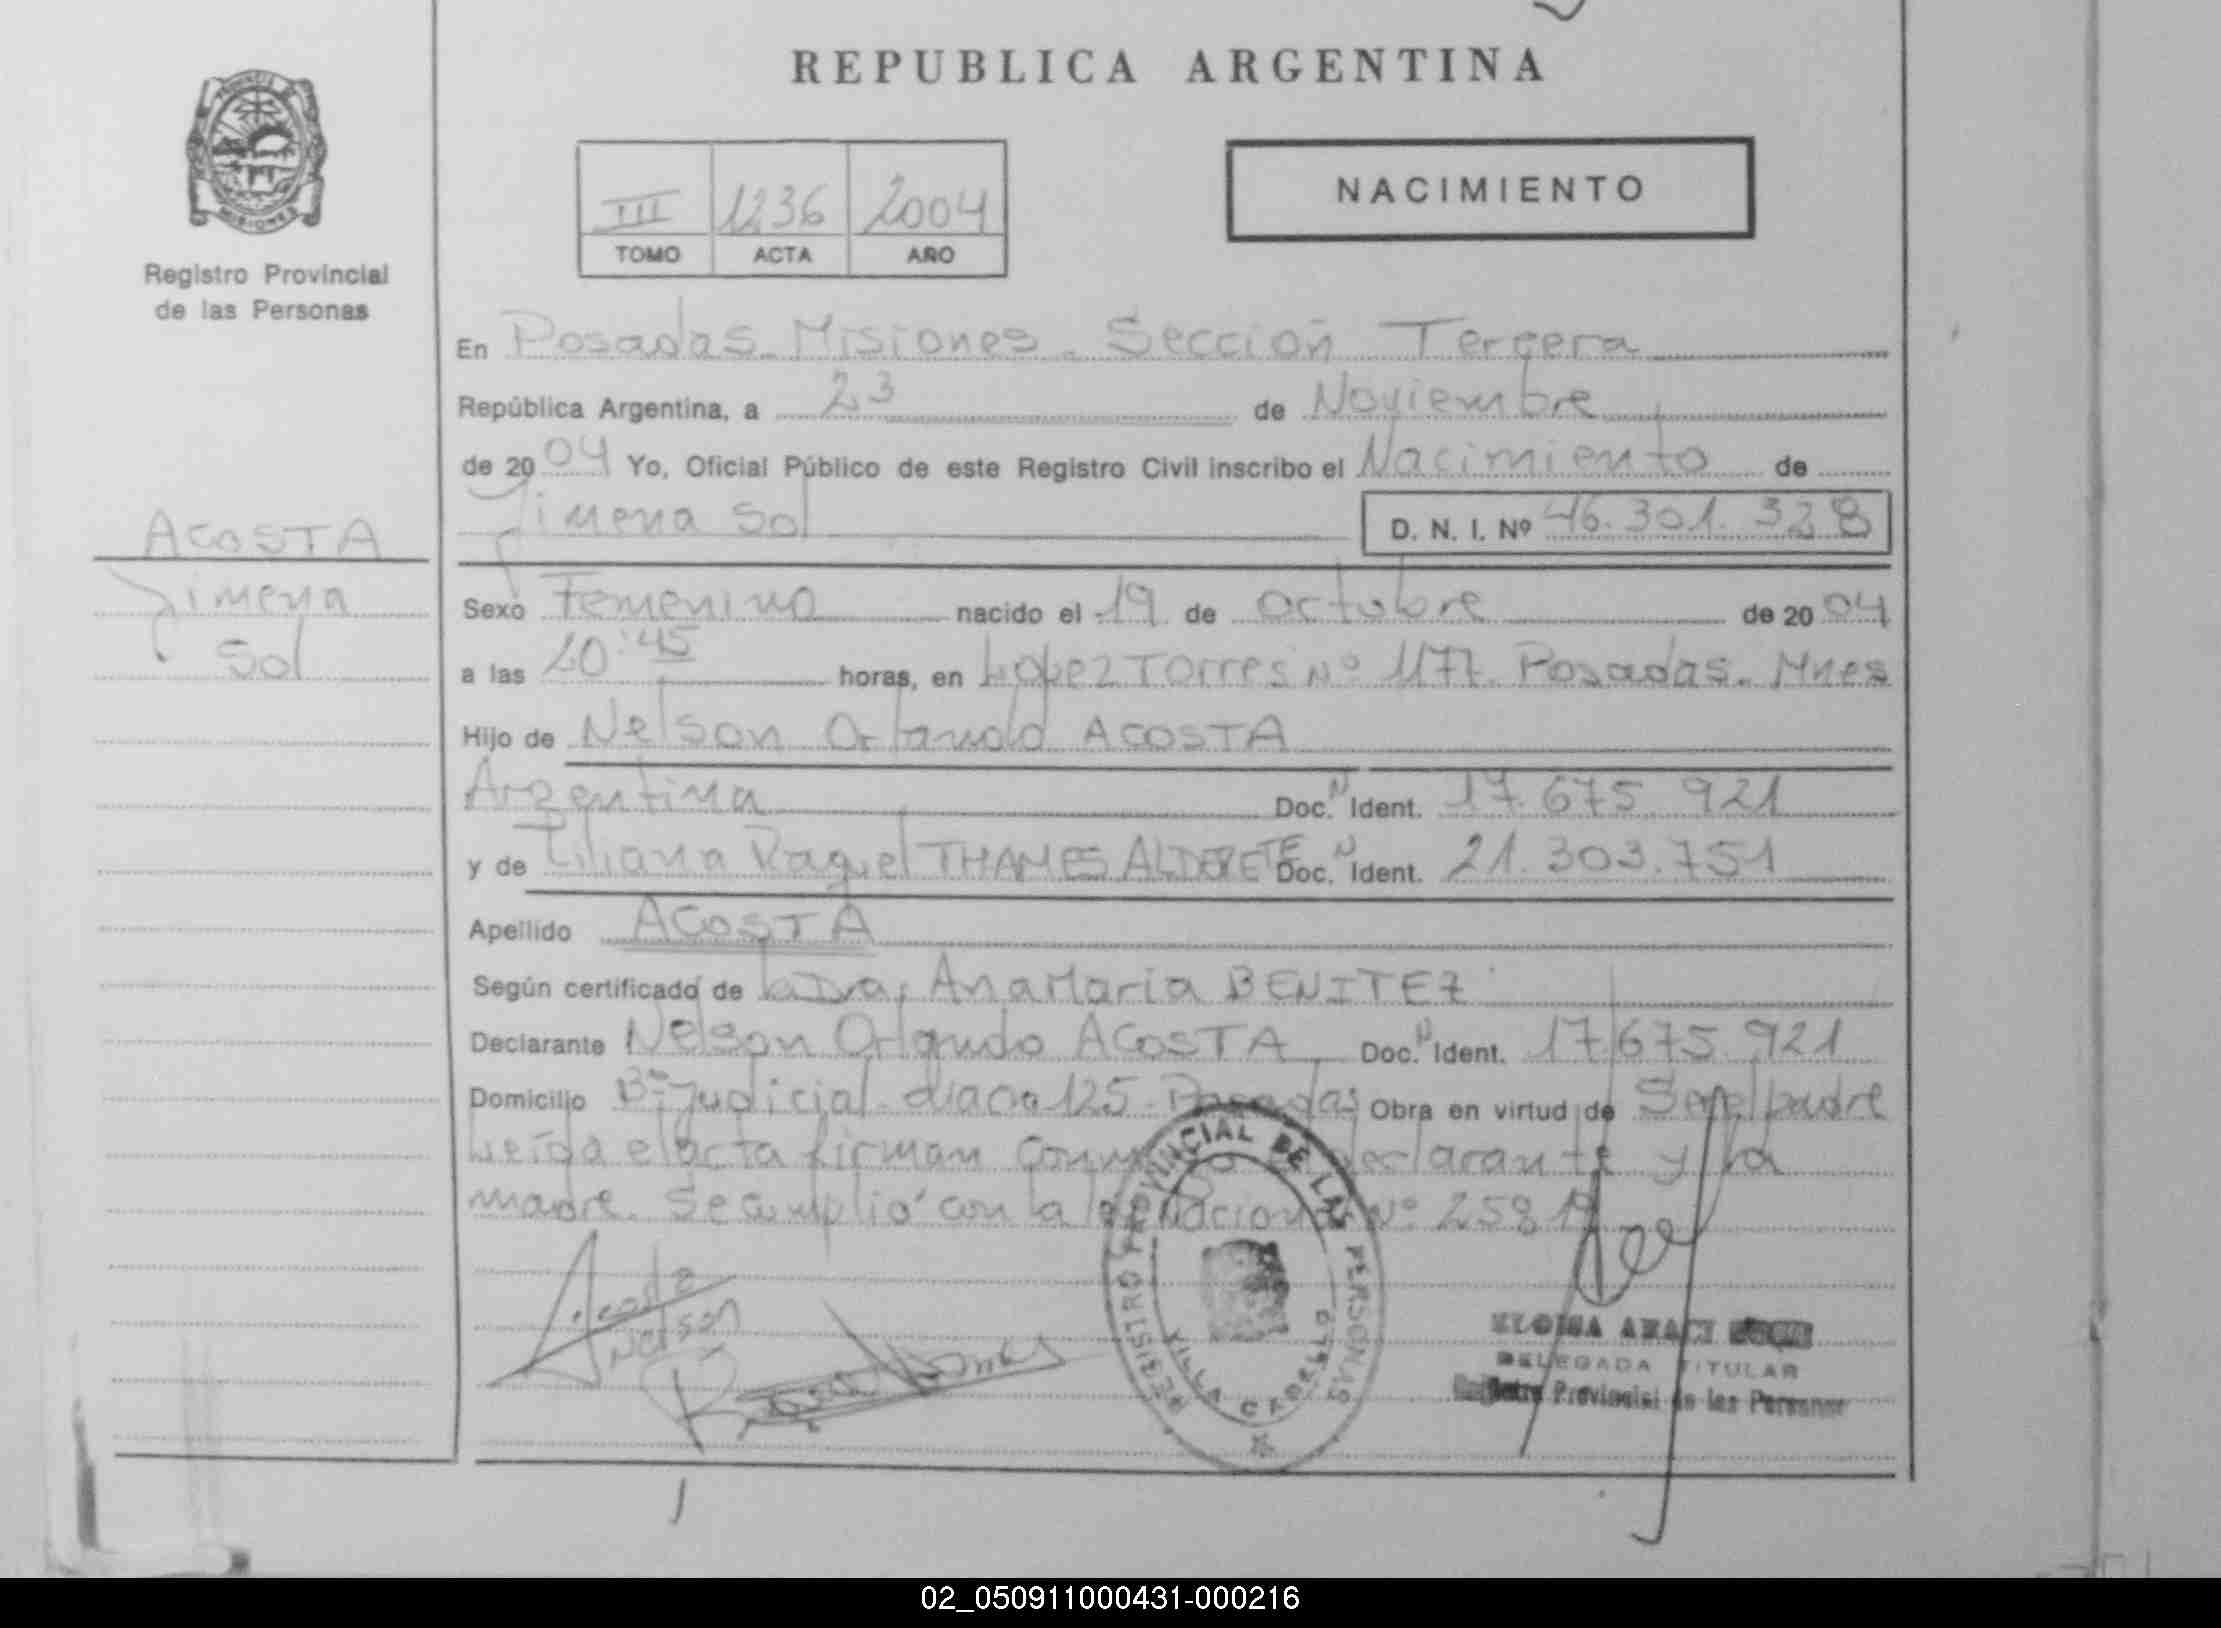 REPUBLICA ARGENTINA
PROVINCIA DE
MISIONES
Registro Provincial
de las Personas
III 1236 2004
TOMO ACTA AÑO
NACIMIENTO
En Posadas. Misiones. Sección Tercera
República Argentina, a 23 de Noviembre
de 2004 Yo, Oficial Público de este Registro Civil inscribo el Nacimiento de
Jimena Sol D. N. I. Nº 46.301.328
ACOSTA
Jimena
Sol
Sexo Femenino nacido el 19 de octubre de 2004
a las 20:45 horas, en Lopez Torres Nº 1177. Posadas. Mnes
Hijo de Nelson Orlando ACOSTA
Argentina Doc. N Ident. 17.675.921
y de Liliana Raquel THAMES ALDERETE Doc. N Ident. 21.303.751
Apellido ACOSTA
Según certificado de la Dra. Ana Maria BENITEZ
Declarante Nelson Orlando ACOSTA Doc. N Ident. 17.675.921
Domicilio Bº Judicial chacra 125. Posadas Obra en virtud de Ser el padre
Leída el acta firman conmigo el declarante y la
madre. Se cumplió con la ley Nacional Nº 25819
Acosta
Nelson
REGISTRO PROVINCIAL DE LAS PERSONAS
VILLA CABELLO
DELEGADA TITULAR
Registro Provincial de las Personas
02_050911000431-000216